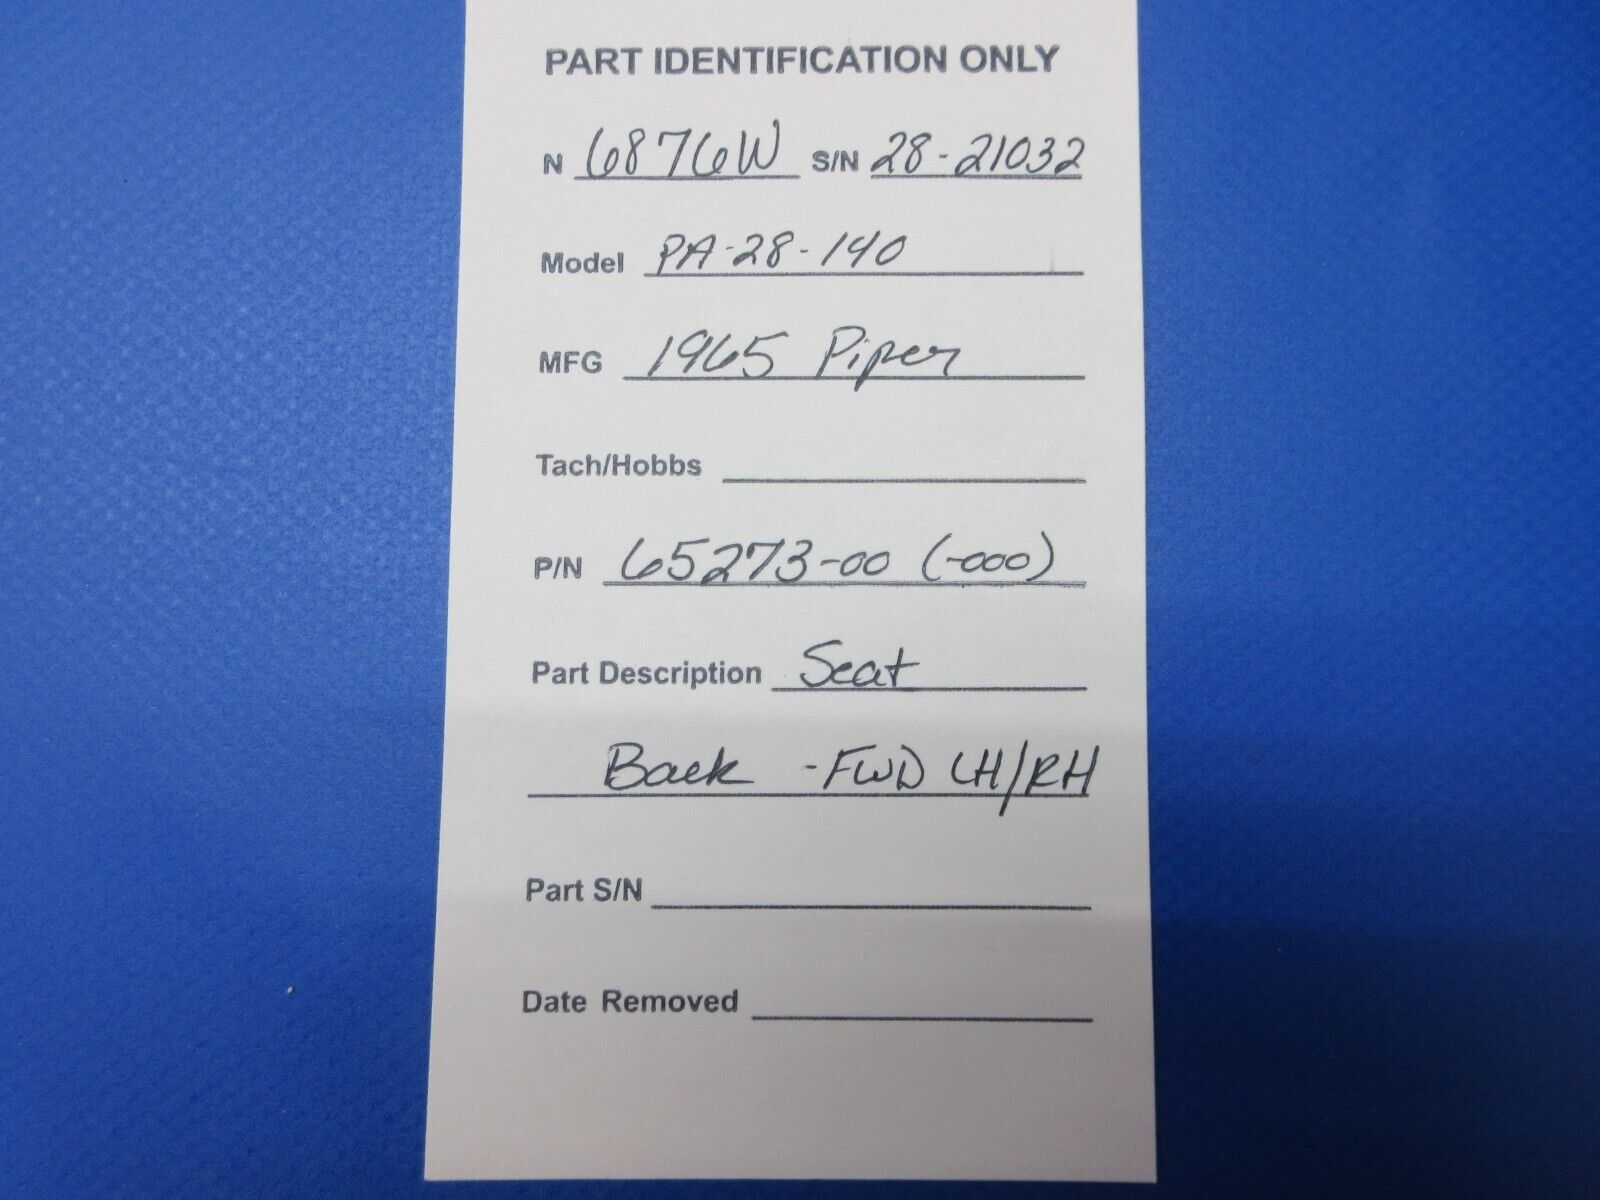 PART IDENTIFICATION ONLY
N 6876W S/N 28-21032
Model PA-28-140
MFG 1965 Piper
Tach/Hobbs
P/N 65273-00 (-000)
Part Description Seat
Back - FWD LH/RH
Part S/N
Date Removed